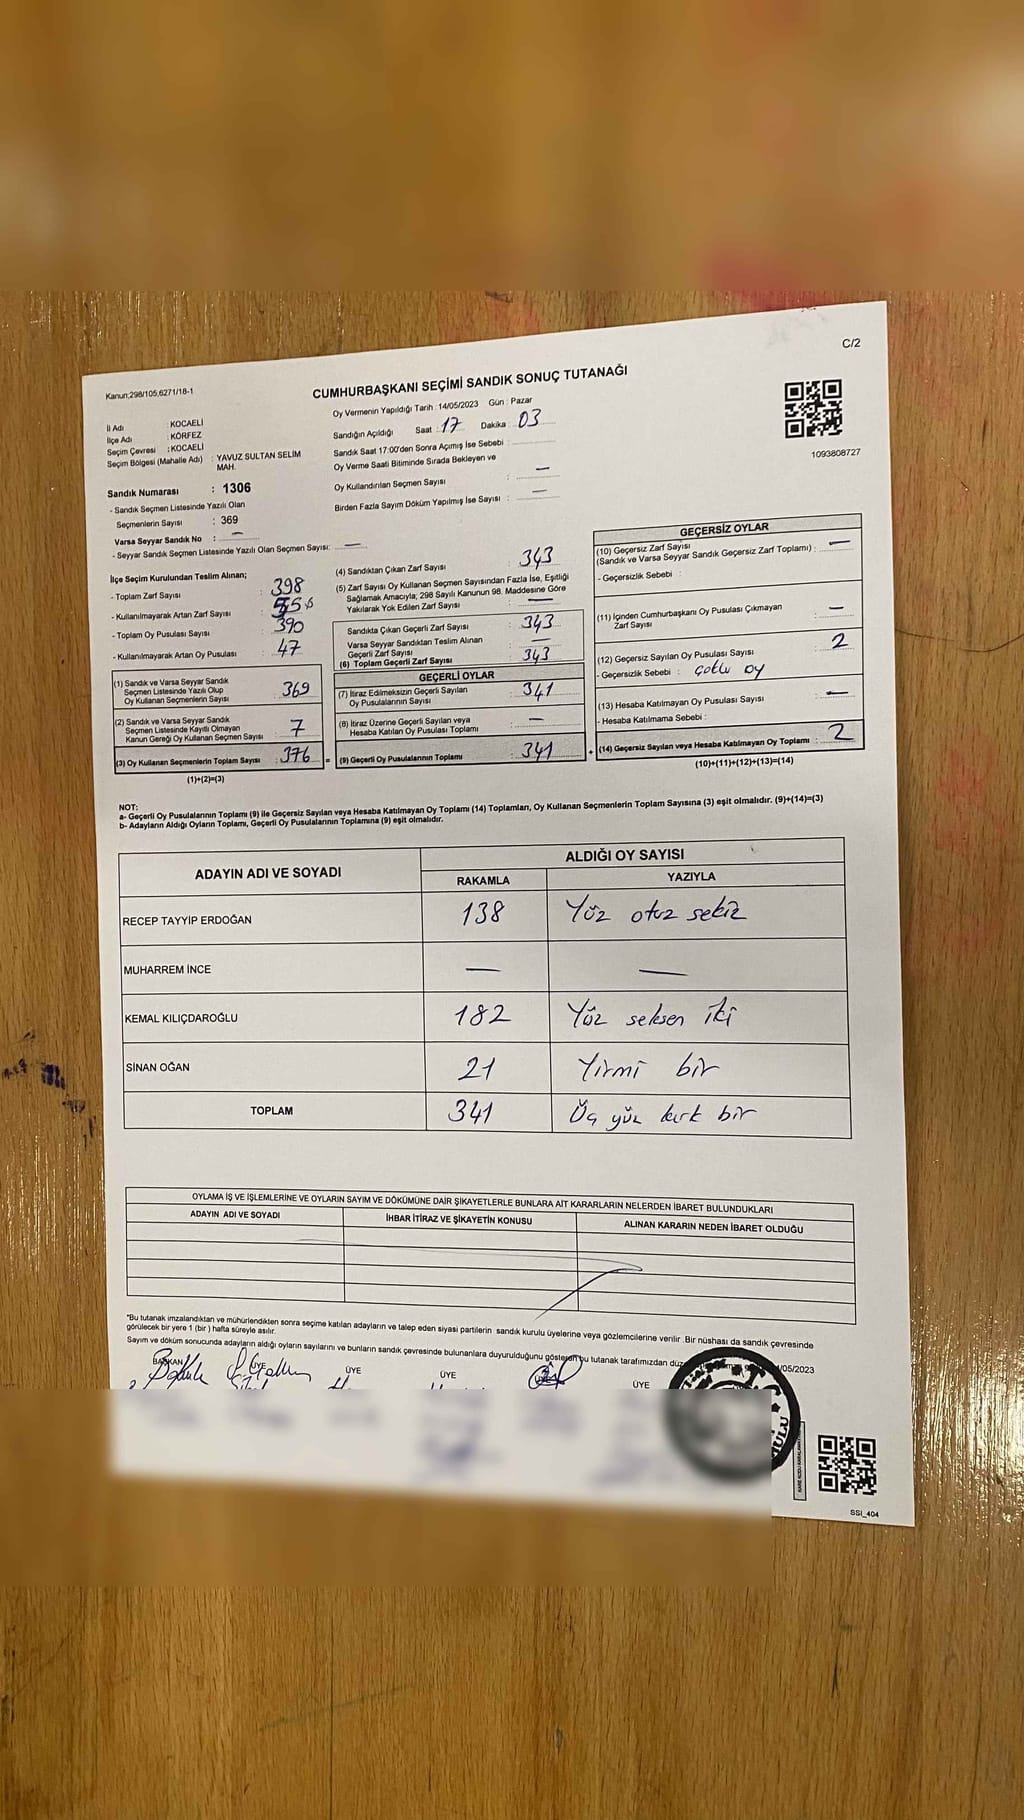 C/2
Kanun;298/105,6271/18-1
CUMHURBAŞKANI SEÇİMİ SANDIK SONUÇ TUTANAĞI
İl Adı : KOCAELİ
İlçe Adı : KÖRFEZ
Seçim Çevresi : KOCAELİ
Seçim Bölgesi (Mahalle Adı) : YAVUZ SULTAN SELİM
MAH.
Sandık Numarası : 1306
- Sandık Seçmen Listesinde Yazılı Olan
Seçmenlerin Sayısı : 369
Varsa Seyyar Sandık No : —
- Seyyar Sandık Seçmen Listesinde Yazılı Olan Seçmen Sayısı: —
Oy Vermenin Yapıldığı Tarih : 14/05/2023 Gün : Pazar
Sandığın Açıldığı Saat : 17 Dakika : 03
Sandık Saat 17:00'den Sonra Açımış İse Sebebi :
Oy Verme Saati Bitiminde Sırada Bekleyen ve
Oy Kullandırılan Seçmen Sayısı : —
Birden Fazla Sayım Döküm Yapılmış İse Sayısı : —
1093808727
İlçe Seçim Kurulundan Teslim Alınan;
- Toplam Zarf Sayısı : 398
- Kullanılmayarak Artan Zarf Sayısı :
- Toplam Oy Pusulası Sayısı : 390
- Kullanılmayarak Artan Oy Pusulası : 47
(1) Sandık ve Varsa Seyyar Sandık
Seçmen Listesinde Yazılı Olup
Oy Kullanan Seçmenlerin Sayısı : 369
(2) Sandık ve Varsa Seyyar Sandık
Seçmen Listesinde Kayıtlı Olmayan
Kanun Gereği Oy Kullanan Seçmen Sayısı : 7
(3) Oy Kullanan Seçmenlerin Toplam Sayısı : 376
(1)+(2)=(3)
(4) Sandıktan Çıkan Zarf Sayısı : 343
(5) Zarf Sayısı Oy Kullanan Seçmen Sayısından Fazla İse, Eşitliği
Sağlamak Amacıyla; 298 Sayılı Kanunun 98. Maddesine Göre
Yakılarak Yok Edilen Zarf Sayısı : —
Sandıkta Çıkan Geçerli Zarf Sayısı : 343
Varsa Seyyar Sandıktan Teslim Alınan
Geçerli Zarf Sayısı : —
(6) Toplam Geçerli Zarf Sayısı : 343
GEÇERLİ OYLAR
(7) İtiraz Edilmeksizin Geçerli Sayılan
Oy Pusulalarının Sayısı : 341
(8) İtiraz Üzerine Geçerli Sayılan veya
Hesaba Katılan Oy Pusulası Toplamı : —
= (9) Geçerli Oy Pusulalarının Toplamı : 341
GEÇERSİZ OYLAR
(10) Geçersiz Zarf Sayısı
(Sandık ve Varsa Seyyar Sandık Geçersiz Zarf Toplamı) : —
- Geçersizlik Sebebi :
(11) İçinden Cumhurbaşkanı Oy Pusulası Çıkmayan
Zarf Sayısı : —
(12) Geçersiz Sayılan Oy Pusulası Sayısı : 2
- Geçersizlik Sebebi : Çoklu oy
(13) Hesaba Katılmayan Oy Pusulası Sayısı : —
- Hesaba Katılmama Sebebi :
+ (14) Geçersiz Sayılan veya Hesaba Katılmayan Oy Toplamı : 2
(10)+(11)+(12)+(13)=(14)
NOT:
a- Geçerli Oy Pusulalarının Toplamı (9) ile Geçersiz Sayılan veya Hesaba Katılmayan Oy Toplamı (14) Toplamları, Oy Kullanan Seçmenlerin Toplam Sayısına (3) eşit olmalıdır. (9)+(14)=(3)
b- Adayların Aldığı Oyların Toplamı, Geçerli Oy Pusulalarının Toplamına (9) eşit olmalıdır.
ADAYIN ADI VE SOYADI ALDIĞI OY SAYISI
RAKAMLA YAZIYLA
RECEP TAYYİP ERDOĞAN 138 Yüz otuz sekiz
MUHARREM İNCE — —
KEMAL KILIÇDAROĞLU 182 Yüz seksen iki
SİNAN OĞAN 21 Yirmi bir
TOPLAM 341 Üç yüz kırk bir
OYLAMA İŞ VE İŞLEMLERİNE VE OYLARIN SAYIM VE DÖKÜMÜNE DAİR ŞİKAYETLERLE BUNLARA AİT KARARLARIN NELERDEN İBARET BULUNDUKLARI
ADAYIN ADI VE SOYADI İHBAR İTİRAZ VE ŞİKAYETİN KONUSU ALINAN KARARIN NEDEN İBARET OLDUĞU
*Bu tutanak imzalandıktan ve mühürlendikten sonra seçime katılan adayların ve talep eden siyasi partilerin sandık kurulu üyelerine veya gözlemcilerine verilir .Bir nüshası da sandık çevresinde
görülecek bir yere 1 (bir ) hafta süreyle asılır.
Sayım ve döküm sonucunda adayların aldığı oyların sayılarını ve bunların sandık çevresinde bulunanlara duyurulduğunu gösteren bu tutanak tarafımızdan /05/2023
BAŞKAN ÜYE ÜYE ÜYE ÜYE ÜYE
SSİ_404